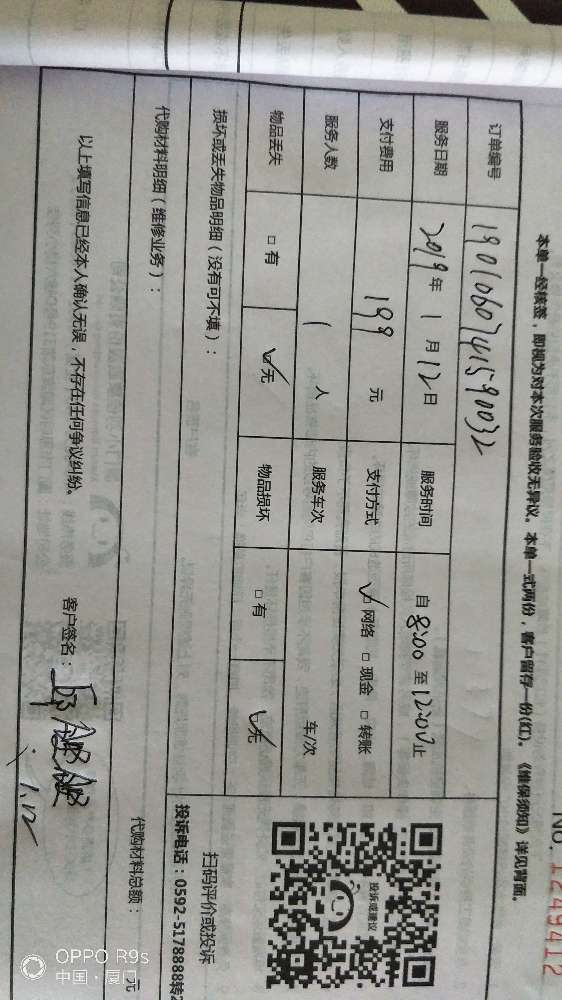 No. 1249412
本单一经核签，即视为对本次服务验收无异议。本单一式两份，客户留存一份(红)。《维保须知》详见背面。
订单编号 1901060741590032
服务日期 2019 年 1 月 12 日 服务时间 自 8:00 至 12:00 止
支付费用 199 元 支付方式 ☑ 网络 □ 现金 □ 转账
服务人数 1 人 服务车次 车/次
物品丢失 □ 有 ☑ 无 物品损坏 □ 有 ☑ 无
损坏或丢失物品明细（没有可不填）：
代购材料明细（维修业务）：
代购材料总额： 元
以上填写信息已经本人确认无误，不存在任何争议纠纷。
客户签名：
1.12
投诉或建议
扫码评价或投诉
投诉电话：0592-5178888转2
OPPO R9s
中国·厦门